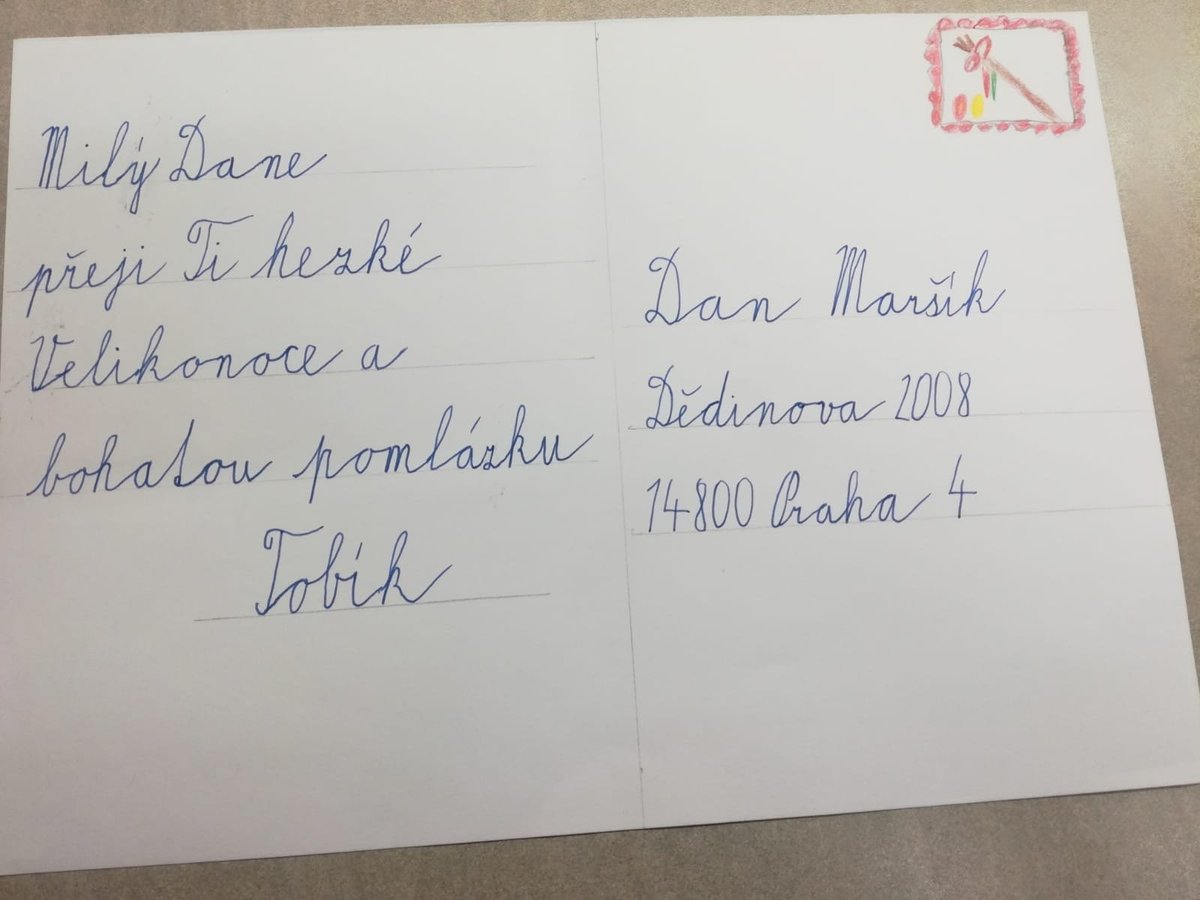 Milý Dane
přeji Ti hezké
Velikonoce a
bohatou pomlázku
Tobík
Dan Maršík
Dědinova 2008
14800 Praha 4